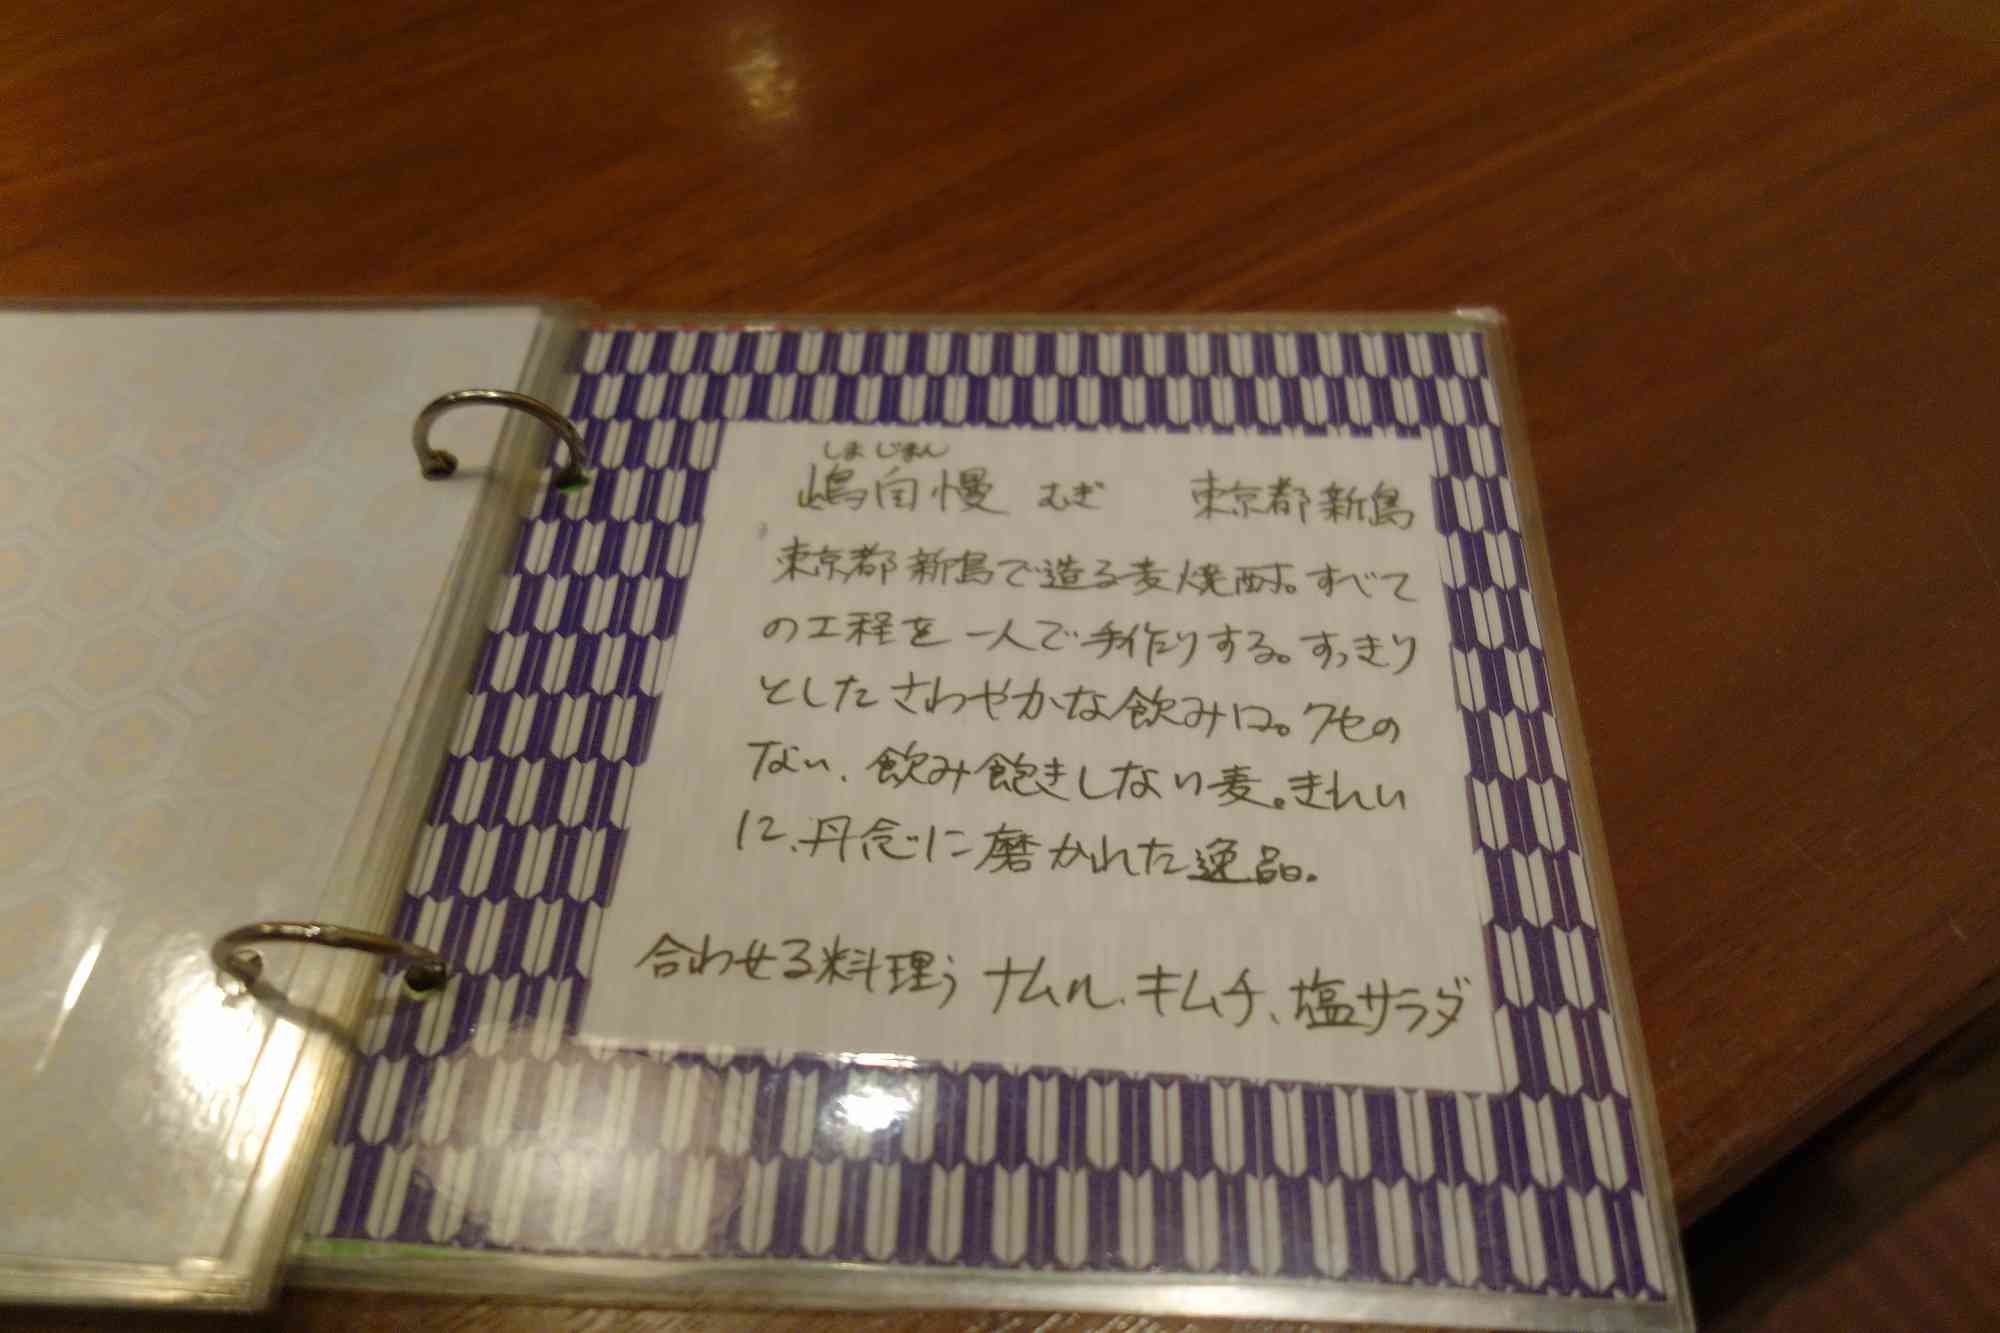 しまじまん
嶋自慢 むぎ 東京都新島
東京都新島で造る麦焼酎。すべて
の工程を一人で手作りする。すっきり
としたさわやかな飲み口。クセの
ない、飲み飽きしない麦。きれい
に、丹念に磨かれた逸品。
合わせる料理〉ナムル、キムチ、塩サラダ